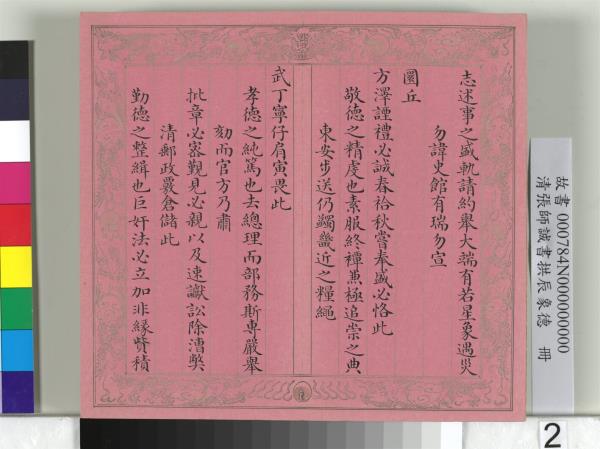 志述事之盛軌請約舉大端有若星象遇災
勿諱史館有瑞勿宣
圜丘
方澤謹禮必誠春祫秋嘗奉盛必恪此
敬德之精虔也素服終禫兼極追崇之典
東安步送仍蠲畿近之糧繩
武丁寧仔肩寅畏此
孝德之純篤也去總理而部務斯專嚴舉
劾而官方乃肅
批章必審覲見必親以及速讞訟除漕弊
清郵政覈倉儲此
勤德之整緝也巨奸法必立加非緣貲積
故書 000784N000000000
清張師誠書拱辰象德 冊
2